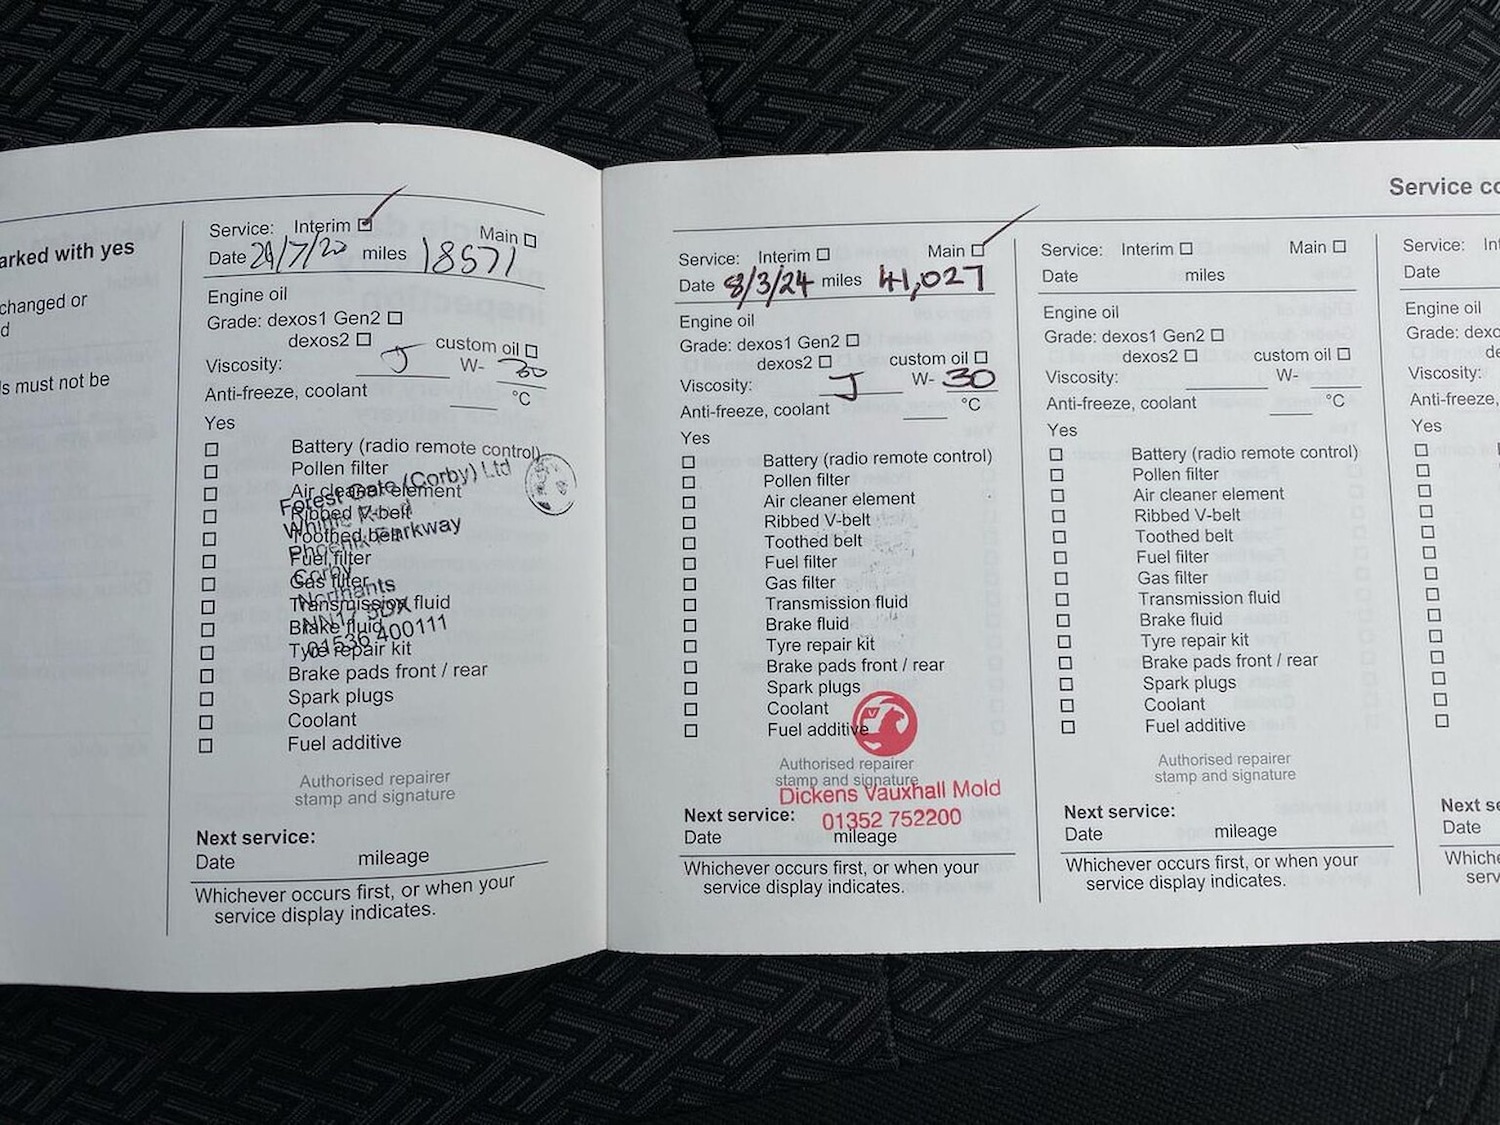 arked with yes
changed or
d
ls must not be
Service: Interim Main
Date 29/7/22 miles 18571
Engine oil
Grade: dexos1 Gen2
dexos2 custom oil
Viscosity: 5 W- 30
Anti-freeze, coolant °C
Yes
Battery (radio remote control)
Pollen filter
Air cleaner element
Ribbed V-belt
Toothed belt
Fuel filter
Gas filter
Transmission fluid
Brake fluid
Tyre repair kit
Brake pads front / rear
Spark plugs
Coolant
Fuel additive
Forest Gate (Corby) Ltd
Phoenix Parkway
Corby
Northants
NN17 5DX
01536 400111
Authorised repairer
stamp and signature
Next service:
Date mileage
Whichever occurs first, or when your
service display indicates.
Service co
Service: Interim Main
Date 8/3/24 miles 41,027
Engine oil
Grade: dexos1 Gen2
dexos2 custom oil
Viscosity: 5 W- 30
Anti-freeze, coolant °C
Yes
Battery (radio remote control)
Pollen filter
Air cleaner element
Ribbed V-belt
Toothed belt
Fuel filter
Gas filter
Transmission fluid
Brake fluid
Tyre repair kit
Brake pads front / rear
Spark plugs
Coolant
Fuel additive
Authorised repairer
stamp and signature
Dickens Vauxhall Mold
01352 752200
Next service:
Date mileage
Whichever occurs first, or when your
service display indicates.
Service: Interim Main
Date miles
Engine oil
Grade: dexos1 Gen2
dexos2 custom oil
Viscosity: W-
Anti-freeze, coolant °C
Yes
Battery (radio remote control)
Pollen filter
Air cleaner element
Ribbed V-belt
Toothed belt
Fuel filter
Gas filter
Transmission fluid
Brake fluid
Tyre repair kit
Brake pads front / rear
Spark plugs
Coolant
Fuel additive
Authorised repairer
stamp and signature
Next service:
Date mileage
Whichever occurs first, or when your
service display indicates.
Service: Int
Date
Engine oil
Grade: dexo
de
Viscosity:
Anti-freeze,
Yes
Next se
Date
Whiche
serv